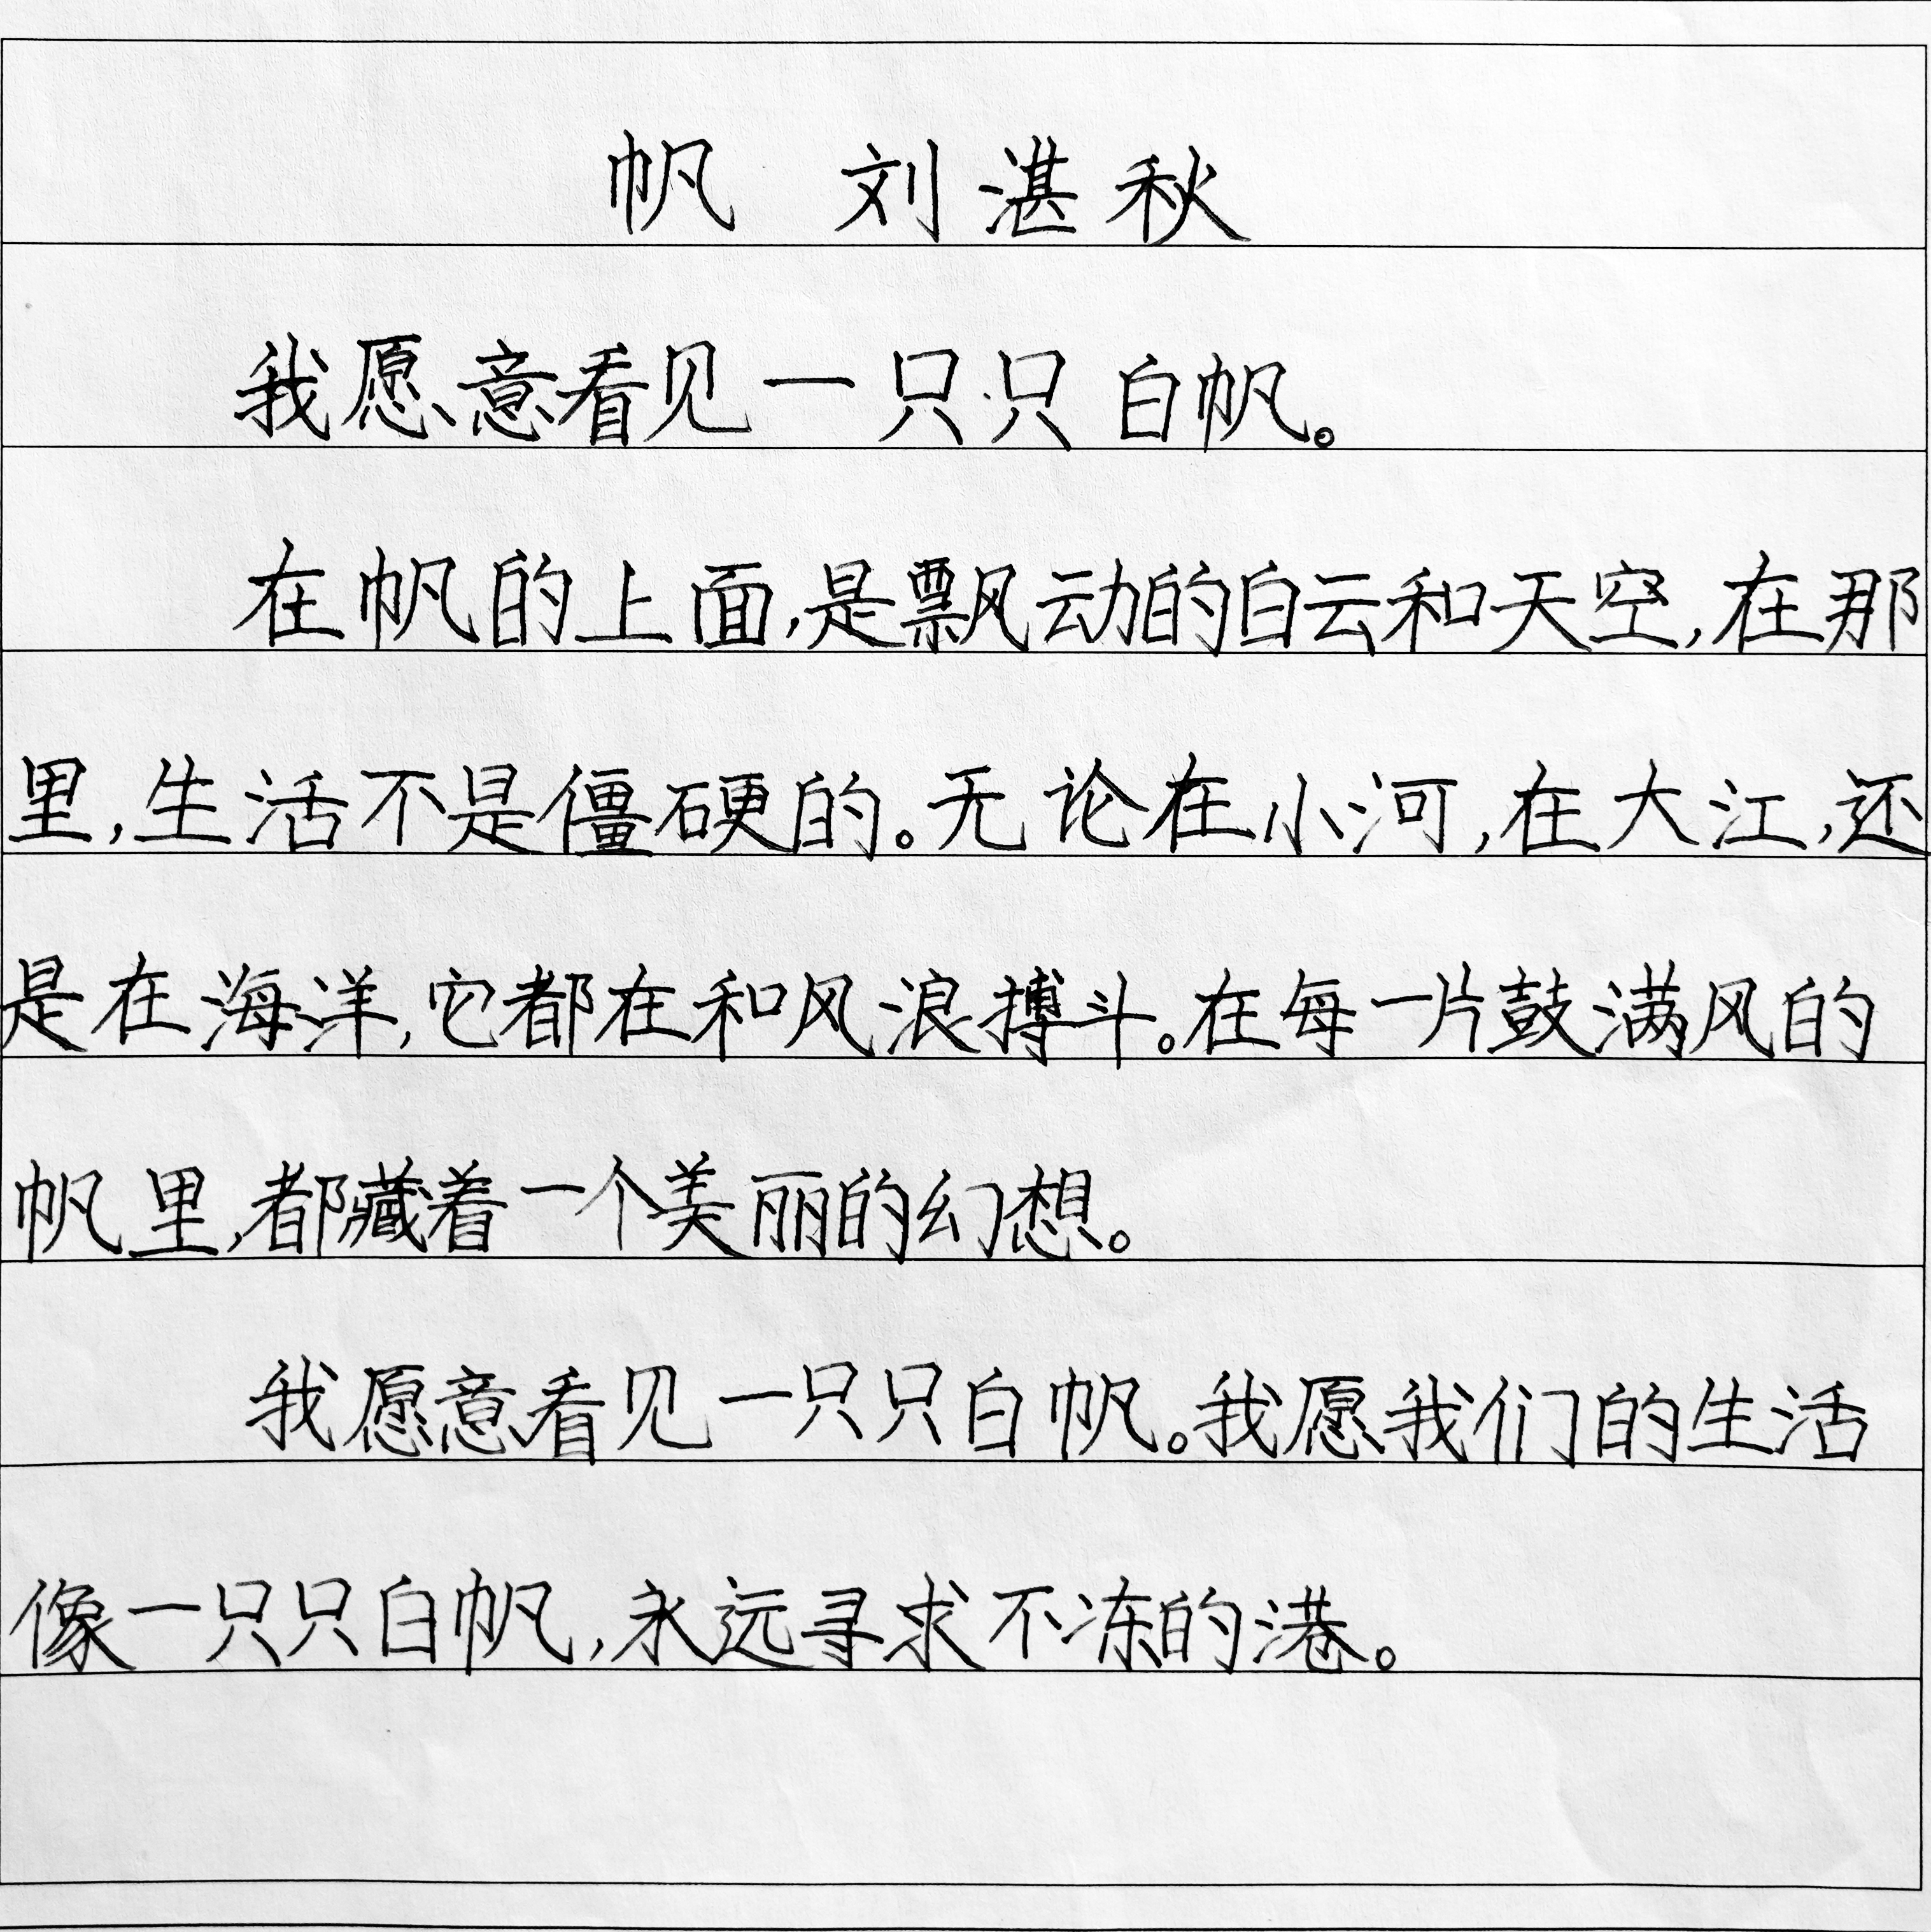 帆 刘湛秋
我愿意看见一只只白帆。
在帆的上面,是飘动的白云和天空,在那
里,生活不是僵硬的。无论在小河,在大江,还
是在海洋,它都在和风浪搏斗。在每一片鼓满风的
帆里,都藏着一个美丽的幻想。
我愿意看见一只只白帆。我愿我们的生活
像一只只白帆,永远寻求不冻的港。